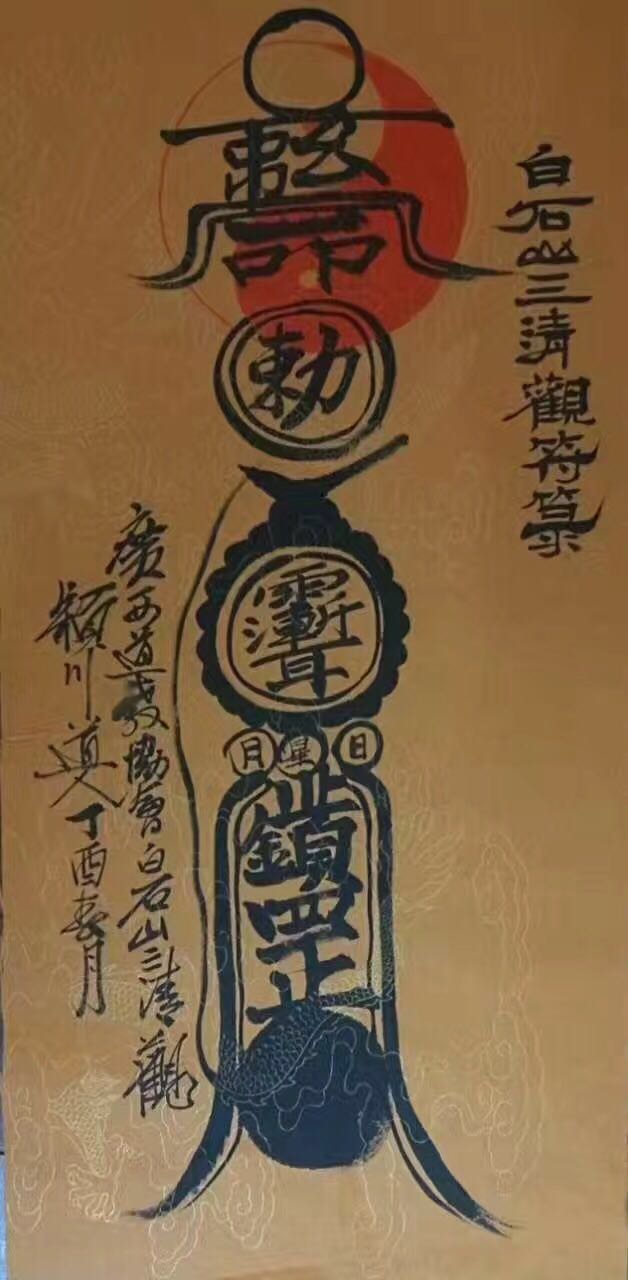 白石山三清觀符箓
勅
月 星 日
罡
廣西道教協會白石山三清觀
潁川道人丁酉春月